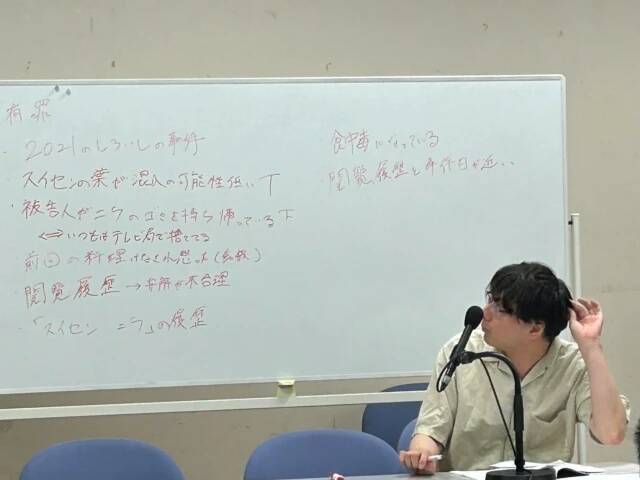 有罪
・2021のしろいしの事件
・スイセンの葉が混入の可能性低い下
・被告人がニラのゴミを持ち帰っている下
⇔いつもはテレビ局で捨ててる
・前回の料理
・閲覧履歴→弁解が不合理
・「スイセン ニラ」の履歴
食中毒になっている
・閲覧履歴と事件日が近い